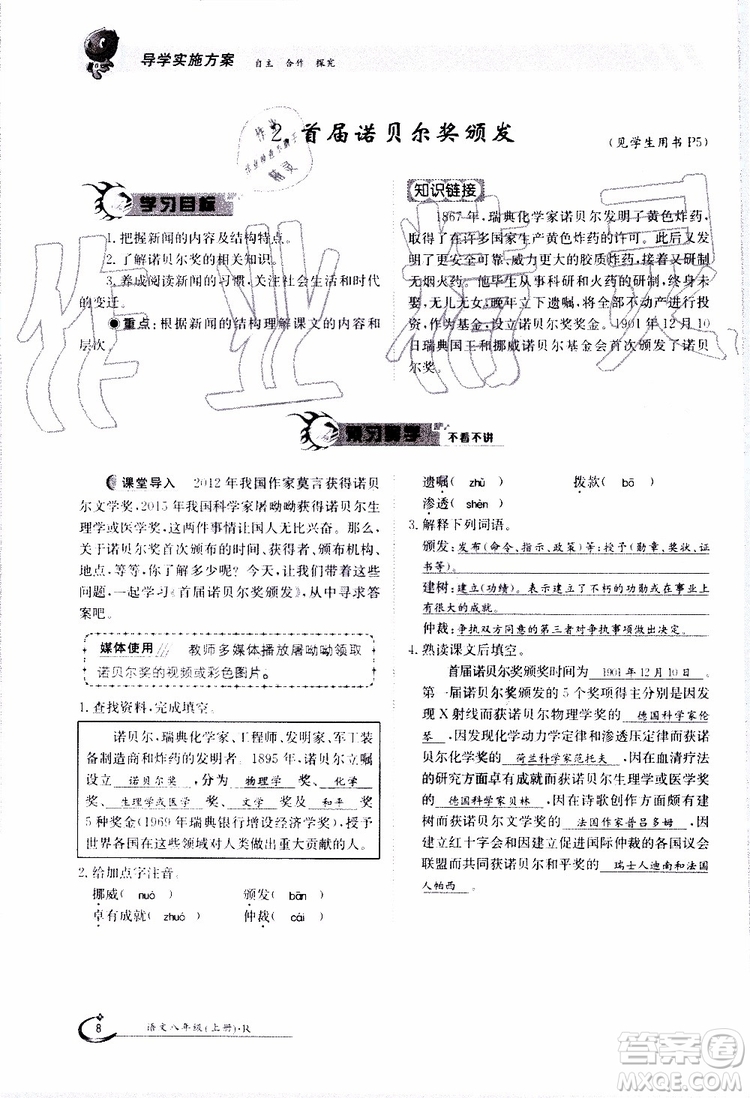 导学实施方案 自主 合作 探究
2. 首届诺贝尔奖颁发
(见学生用书 P5)
学习目标
1. 把握新闻的内容及结构特点。
2. 了解诺贝尔奖的相关知识。
3. 养成阅读新闻的习惯,关注社会生活和时代
的变迁。
●重点:根据新闻的结构理解课文的内容和
层次。
知识链接
1867 年,瑞典化学家诺贝尔发明了黄色炸药,
取得了在许多国家生产黄色炸药的专利权,后又发
明了更安全的胶质炸药、威力更大的胶质炸药、
无烟火药。他毕生从事科研和火药的研制,终身未
娶,无儿无女,晚年立下遗嘱,将其大部分财产进行
投资,作为基金,设立诺贝尔奖奖金。1901 年 12 月 10
日瑞典国王和挪威诺贝尔基金会首次颁发了诺贝
尔奖。
预习导学 不看不讲
课堂导入 2012 年我国作家莫言获得诺贝
尔文学奖,2015 年我国科学家屠呦呦获得诺贝尔生
理学或医学奖,这两件事情让国人无比兴奋。那么,
关于诺贝尔奖首次颁布的时间、获得者、颁布机构、
地点,等等,你已经了解多少呢?今天,让我们带着这些
问题,一起学习《首届诺贝尔奖颁发》,从中寻求答
案吧。
媒体使用 教师多媒体播放屠呦呦领取
诺贝尔奖的视频或彩色图片。
1. 查找资料,完成填空。
诺贝尔,瑞典化学家、工程师、发明家、军工装
备制造商和炸药的发明者。1895 年,诺贝尔立嘱
设立 诺贝尔奖 ,分为 物理学 奖、 化学
奖、 生理学或医学 奖、 文学 奖和 和平 奖
5 种奖金(1969 年瑞典银行增设经济学奖),授予
世界各国在这些领域对人类做出重大贡献的人。
2. 给加点字注音。
挪威( nuó ) 颁发( bān )
卓有成就( zhuó ) 仲裁( cái )
遗嘱( zhǔ ) 拨款( bō )
渗透( shèn )
3. 解释下列词语。
颁发:发布(命令、指示、政策)等;授予(勋章、奖状、证
书等)。
建树:建立(功绩)。表示建立了不朽的功勋或在事业上
有很大的成就。
仲裁:争执双方同意的第三者对争执事项做出决定。
4. 熟读课文后填空。
首届诺贝尔奖颁奖时间为 1901 年 12 月 10 日 。
第一届诺贝尔奖颁发的 5 个奖项得主分别是因发
现 X 射线而获诺贝尔物理学奖的 德国科学家伦
琴 、因发现化学动力学定律和渗透压定律而获诺
贝尔化学奖的 荷兰科学家范托夫 、因血清疗法
的研究方面卓有成就而获诺贝尔生理学或医学奖
的 德国科学家贝林 、因在诗歌创作方面颇有建
树而获诺贝尔文学奖的 法国作家普吕多姆 、因
建立红十字会和因促进国际仲裁的各国议会
联盟而共同获诺贝尔和平奖的 瑞士人迪南和法国
人帕西 。
8 语文八年级(上册)·R
作业精灵
答案圈
MXQE.COM